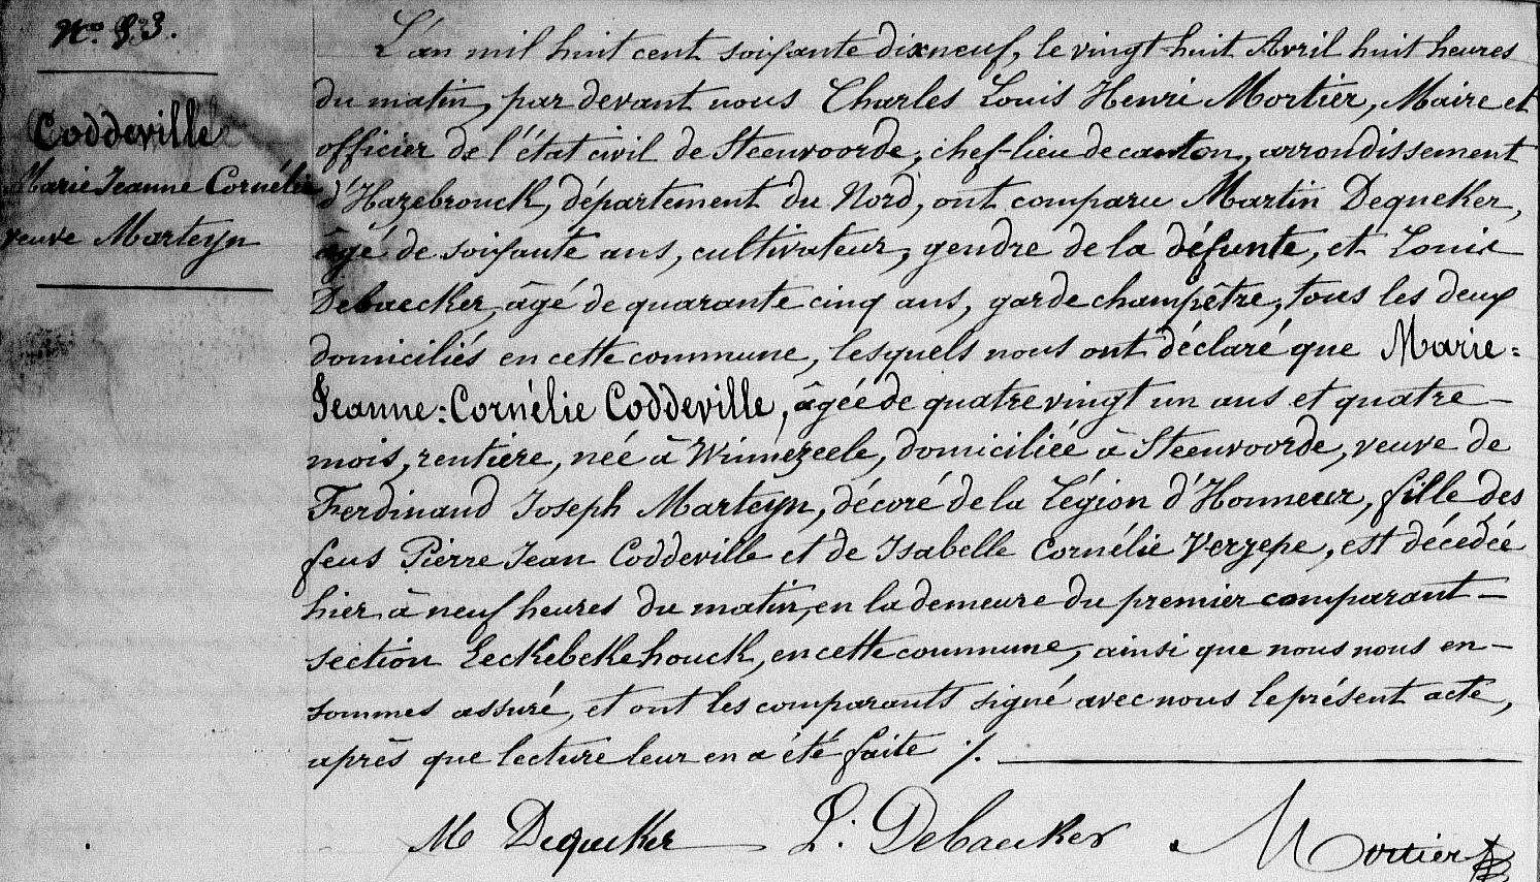 N° 53.
Coddeville
Marie Jeanne Cornélie
veuve Marteyn
L'an mil huit cent soixante dixneuf, le vingt-huit Avril huit heures
du matin, par devant nous Charles Louis Henri Mortier, Maire et
officier de l'état civil de Steenvoorde, chef-lieu de canton, arrondissement
d'Hazebrouck, département du Nord, ont comparu Martin Dequeker,
âgé de soixante ans, cultivateur, gendre de la défunte, et Louis
Debaecker, âgé de quarante cinq ans, garde champêtre, tous les deux
domiciliés en cette commune, lesquels nous ont déclaré que Marie=
Jeanne=Cornélie Coddeville, âgée de quatre vingt un ans et quatre -
mois, rentière, née à Winnezeele, domiciliée à Steenvoorde, veuve de
Ferdinand Joseph Marteyn, décoré de la Légion d'Honneur, fille des
feus Pierre Jean Coddeville et de Isabelle Cornélie Verzepe, est décédée
hier à neuf heures du matin, en la demeure du premier comparant -
section Eeckebekehouck, en cette commune, ainsi que nous nous en -
sommes assuré, et ont les comparants signé avec nous le présent acte,
après que lecture leur en a été faite ./.
M Dequeker L. Debaecker Mortier